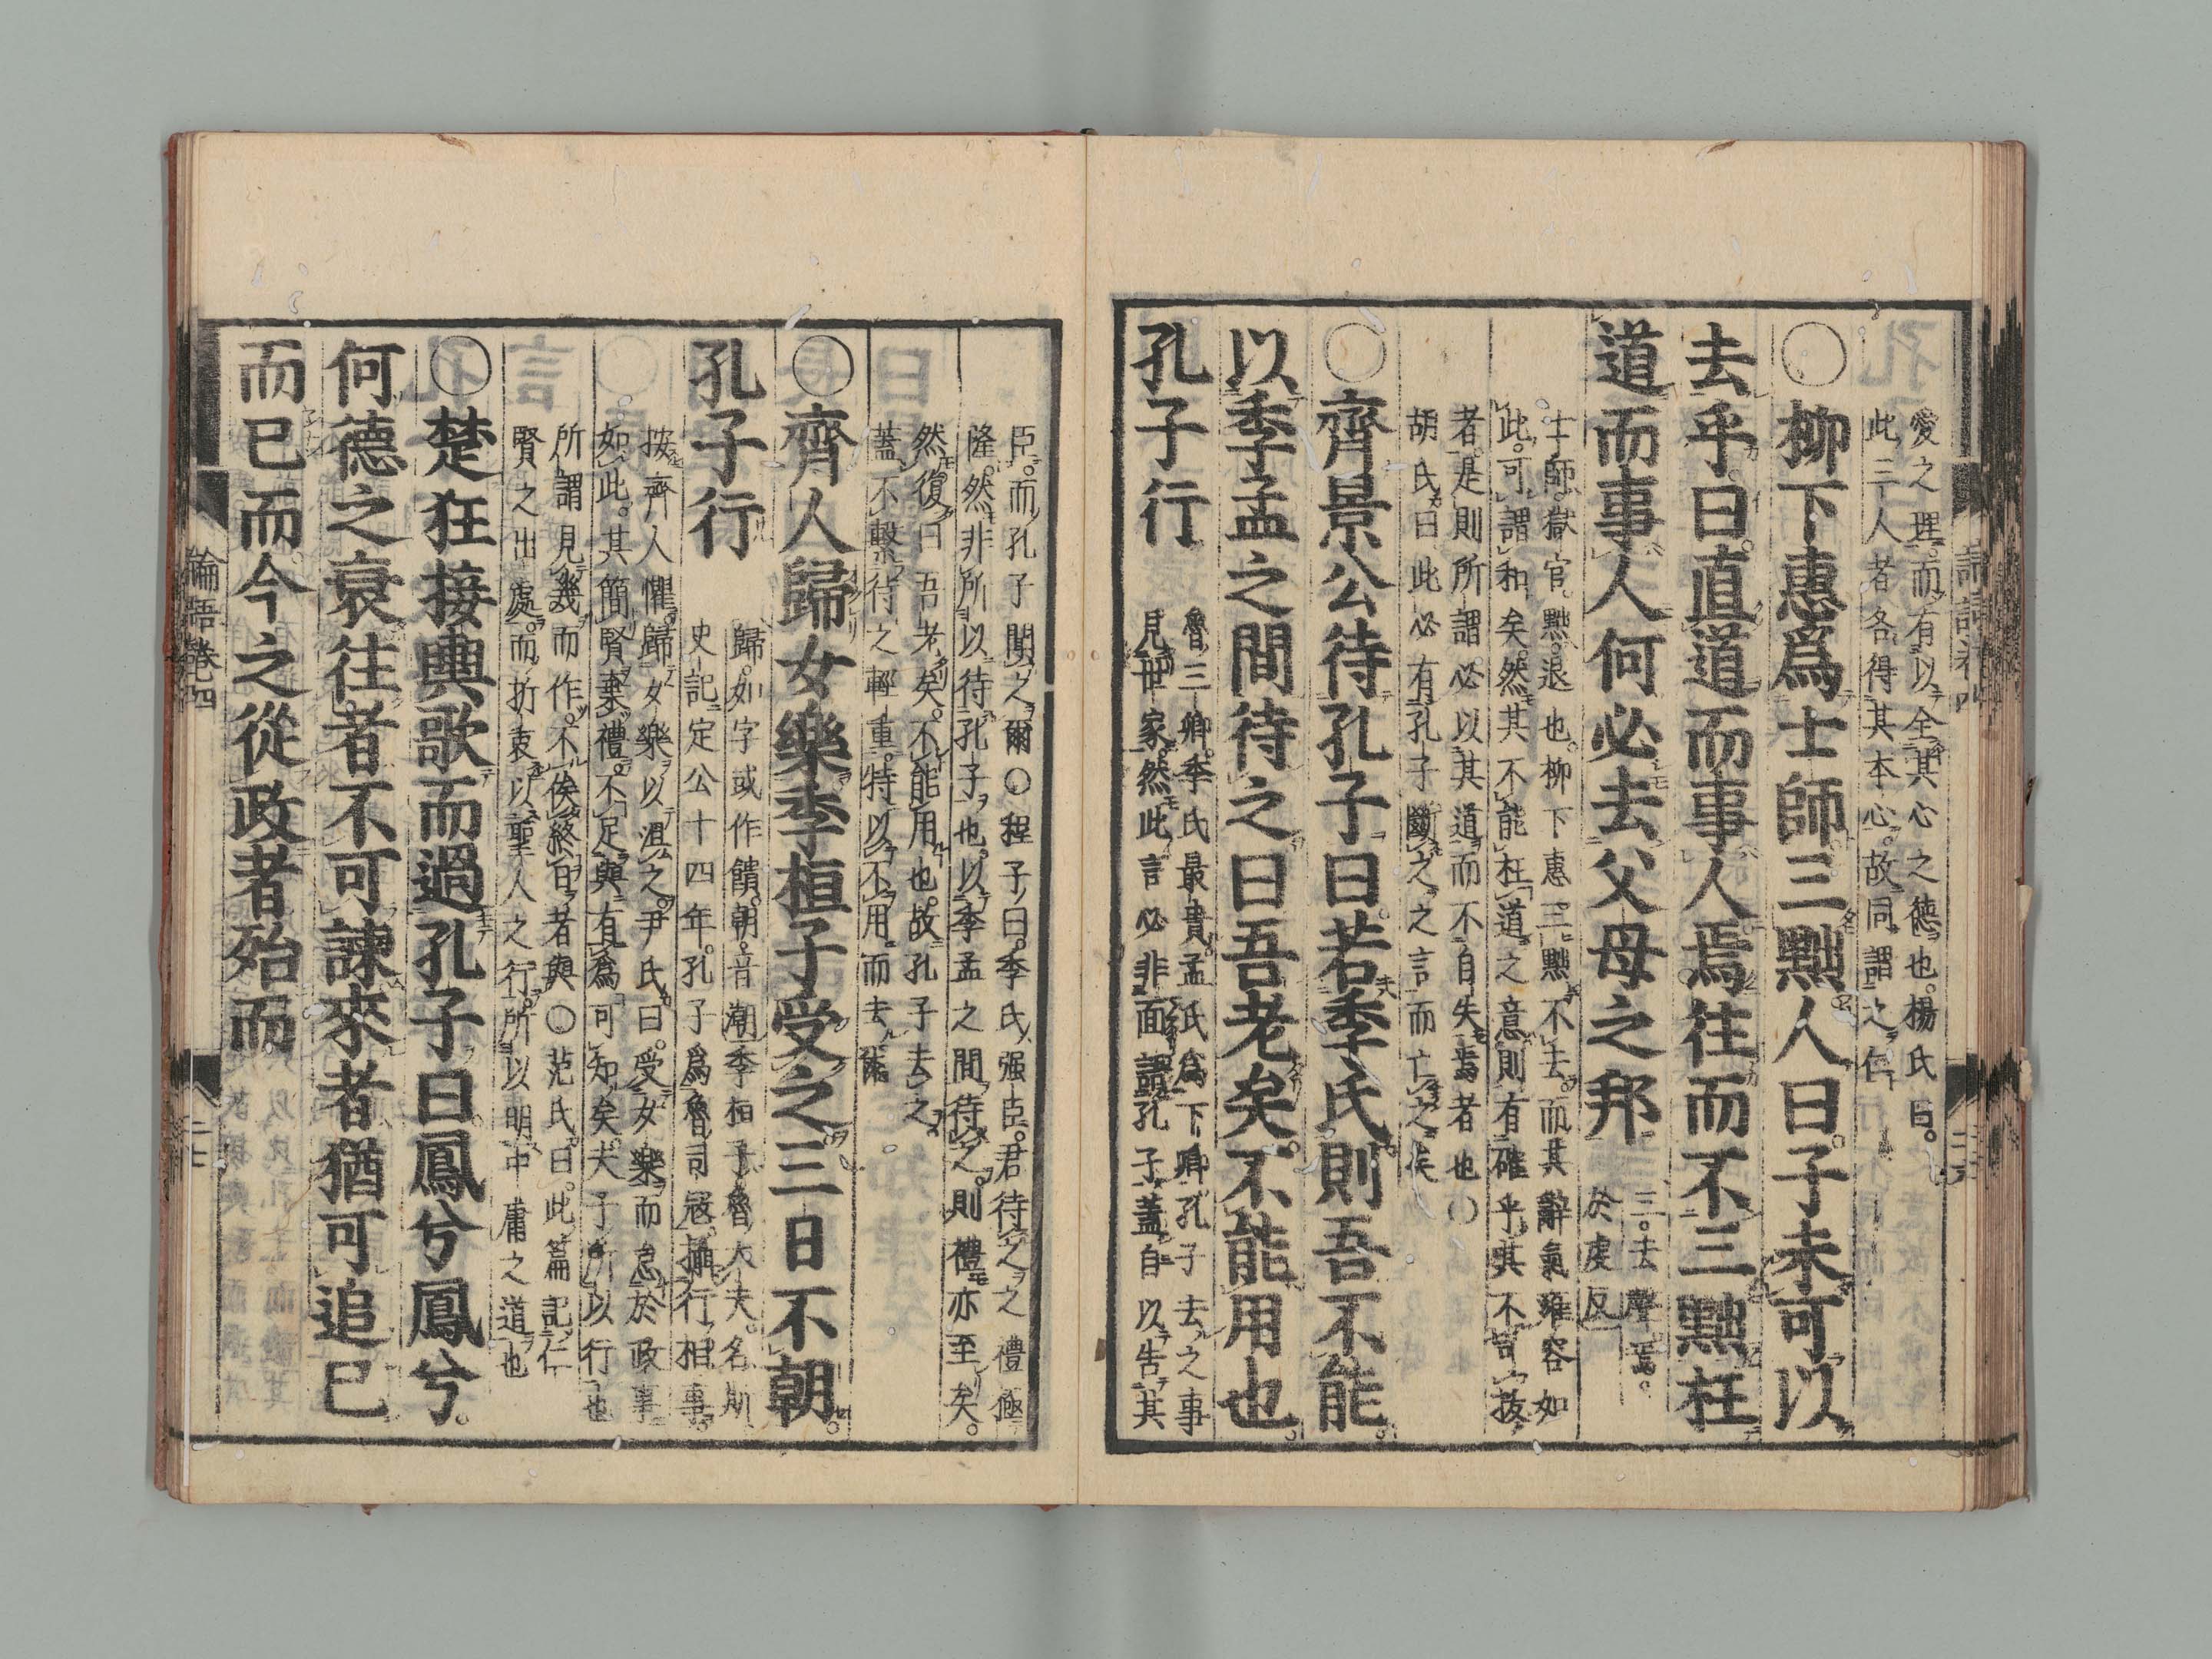 愛之理而有以全其心之德也楊氏曰
此三人者各得其本心故同謂之仁
○柳下惠爲士師三黜人曰子未可以
去乎曰直道而事人焉往而不三黜枉
道而事人何必去父母之邦
三去聲焉
於虔反
士師獄官黜退也柳下惠三黜不去而其辭氣雍容如
此可謂和矣然其不能枉道之意則有確乎其不可拔
者是則所謂必以其道而不自失焉者也○
胡氏曰此必有孔子斷之之言而亡之矣
○齊景公待孔子曰若季氏則吾不能
以季孟之間待之曰吾老矣不能用也
孔子行
魯三卿季氏最貴孟氏爲下卿孔子去之事
見世家然此言必非面語孔子蓋自以告其
臣而孔子聞之爾○程子曰季氏强臣君待之之禮極
隆然非所以待孔子也以季孟之間待之則禮亦至矣
然復曰吾老矣不能用也故孔子去之
蓋不繫待之輕重特以不用而去爾
○齊人歸女樂季桓子受之三日不朝
孔子行
歸如字或作饋朝音潮季桓子魯大夫名斯
史記定公十四年孔子爲魯司寇攝行相事
按齊人懼歸女樂以沮之尹氏曰受女樂而怠於政事
如此其簡賢棄禮不足與有爲可知矣夫子所以行也
所謂見幾而作不俟終日者與○范氏曰此篇記仁
賢之出處而折衷以聖人之行所以明中庸之道也
○楚狂接輿歌而過孔子曰鳳兮鳳兮
何德之衰往者不可諫來者猶可追已
而已而今之從政者殆而
論語卷四
二十七